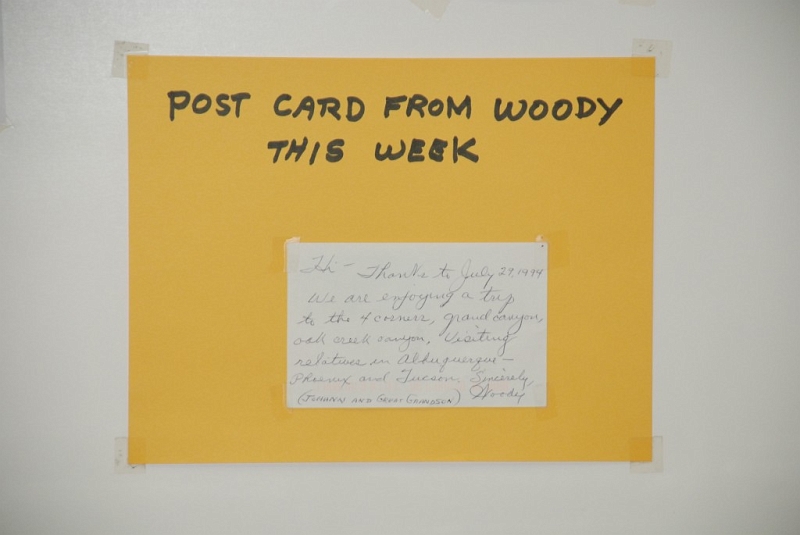 POST CARD FROM WOODY
THIS WEEK
Hi - Thanks to July 29, 1994
We are enjoying a trip
to the 4 corners, grand canyon,
oak creek canyon, Visiting
relatives in Albuquerque -
Phoenix and Tucson. Sincerely,
(JUHANN AND GREAT GRANDSON) Woody